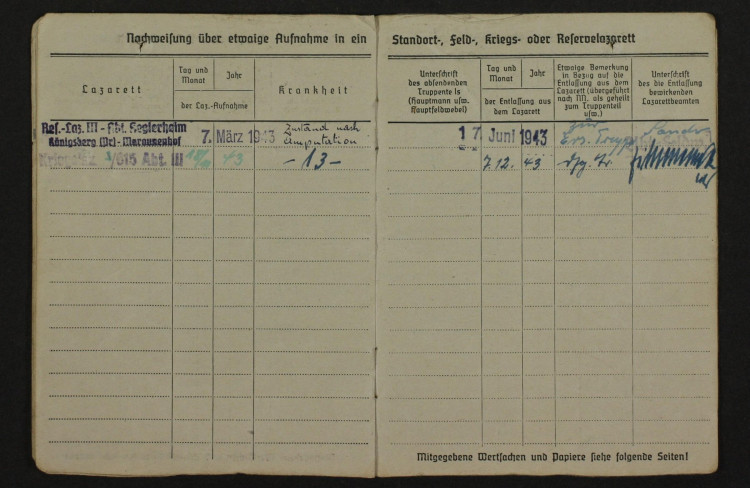 Nachweisung über etwaige Aufnahme in ein
Standort-, Feld-, Kriegs- oder Reservelazarett
Lazarett
Tag und
Monat
Jahr
der Laz.-Aufnahme
Krankheit
Unterschrift
des absendenden
Truppenteils
(Hauptmann usw.
Hauptfeldwebel)
Tag und
Monat
Jahr
der Entlassung aus
dem Lazarett
Etwaige Bemerkung
in Bezug auf die
Entlassung aus dem
Lazarett (übergeführt
nach NN. als geheilt
zum Truppenteil
usw.)
Unterschrift
des die Entlassung
bewirkenden
Lazarettbeamten
Res.-Laz. III - Abt. Seglerheim
Königsberg (Pr) - Maraunenhof
7. März 1943
Zustand nach
Amputation
17. Juni 1943
zur
Ers. Trupp
/615 Abt. III
43
- 13 -
7.12. 43
Mitgegebene Wertsachen und Papiere siehe folgende Seiten!